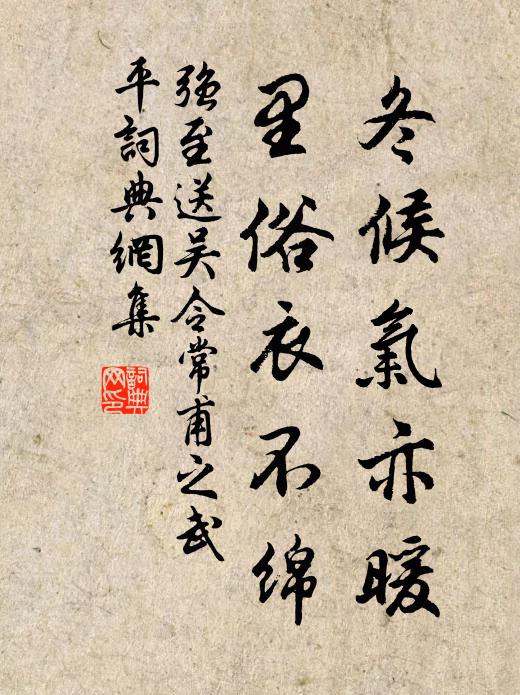 冬候氣亦暖
里俗衣不綿
强至送吴令常甫之武
平詞典網集
詞典
网印